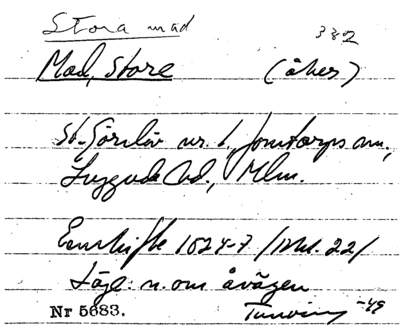 Stora mad
382
Mad, Store (åker)
St. Görslöv nr. 1, Jonstorps sn.,
Luggude hd., Mlm.
Enskifte 1824-7 /Akt. 22/
Läge: n. om åvägen
Nr 5683. Tuneving -49